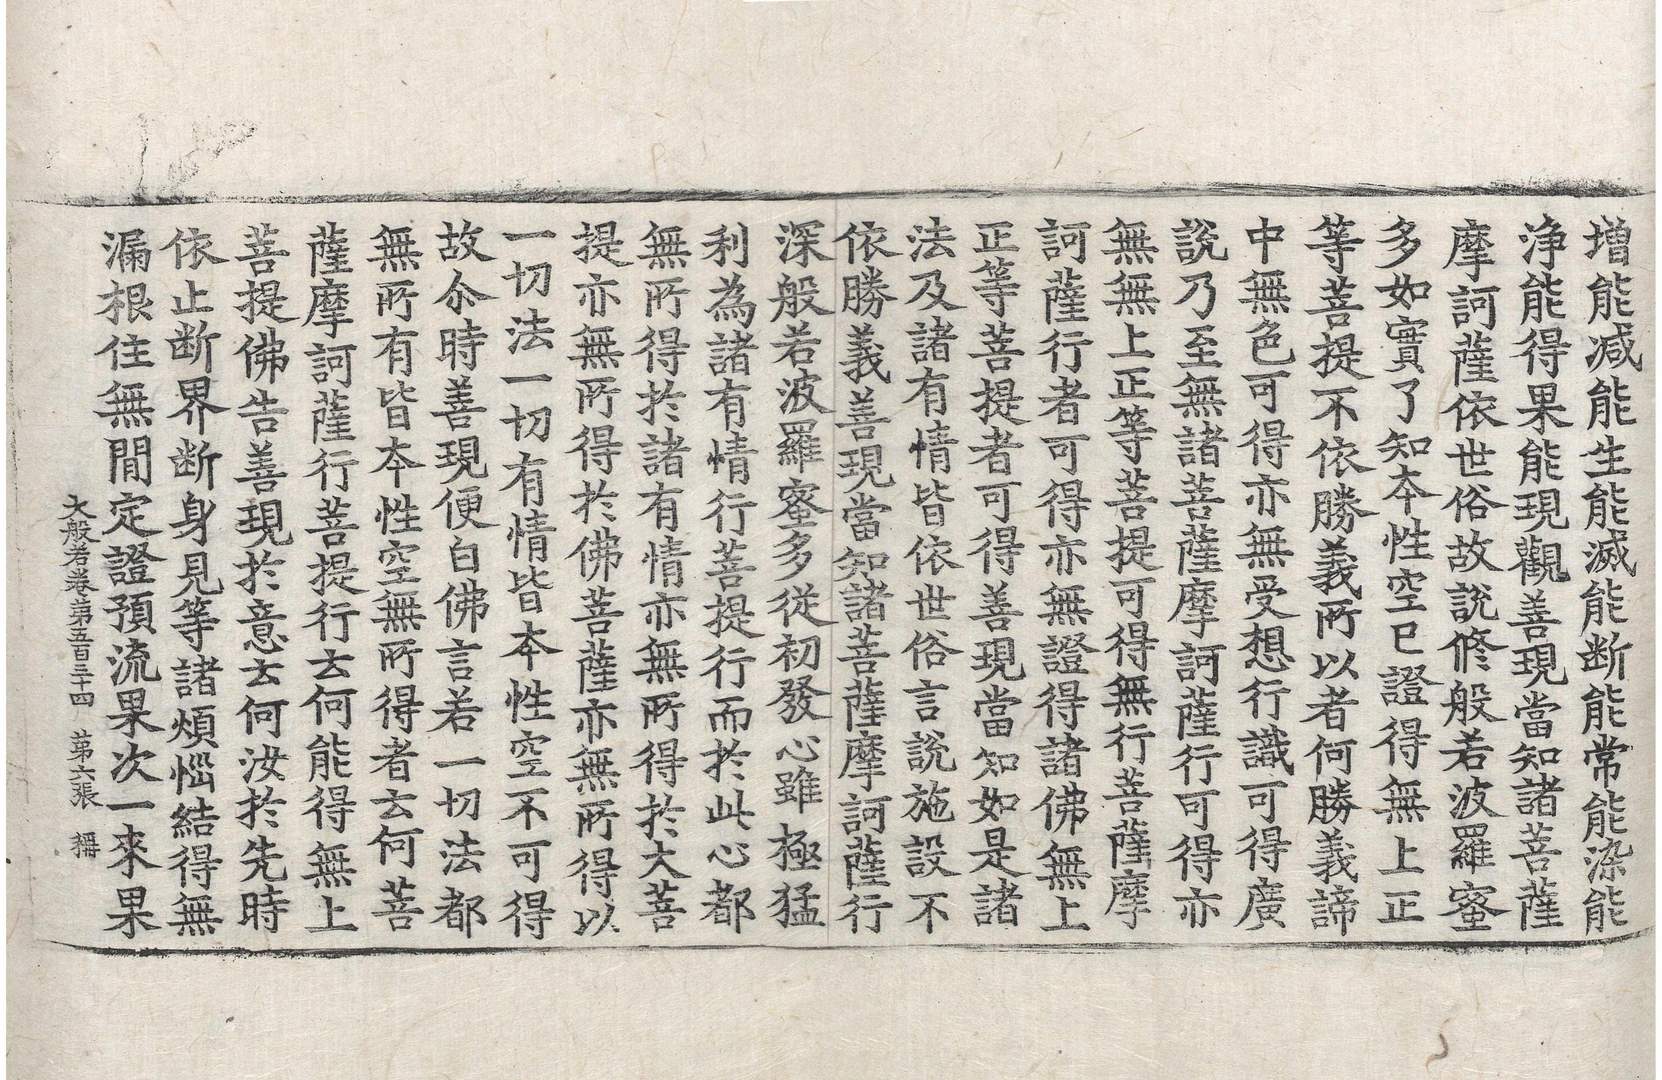 增能减能生能滅能断能常能染能
淨能得果能現觀善現當知諸菩薩
摩訶薩依世俗故說修般若波羅蜜
多如實了知本性空已證得無上正
等菩提不依勝義所以者何勝義諦
中無色可得亦無受想行識可得廣
說乃至無諸菩薩摩訶薩行可得亦
無無上正等菩提可得無行菩薩摩
訶薩行者可得亦無證得諸佛無上
正等菩提者可得善現當知如是諸
法及諸有情皆依世俗言說施設不
依勝義善現當知諸菩薩摩訶薩行
深般若波羅蜜多從初發心雖極猛
利為諸有情行菩提行而於此心都
無所得於諸有情亦無所得於大菩
提亦無所得於佛菩薩亦無所得以
一切法一切有情皆本性空不可得
故尒時善現便白佛言若一切法都
無所有皆本性空無所得者云何菩
薩摩訶薩行菩提行云何能得無上
菩提佛告善現於意云何汝於先時
依止断界断身見等諸煩惱結得無
漏根住無間定證預流果次一來果
大般若卷第五百三十四 第六張 稱